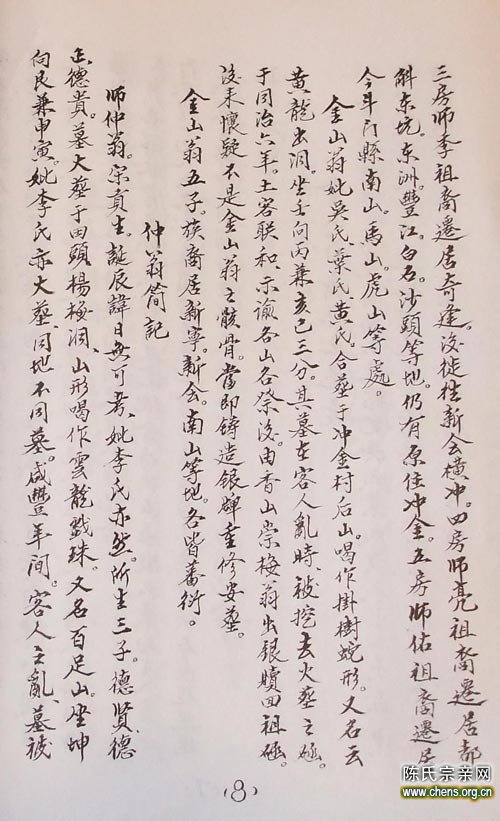 三房师季祖裔遷居奇逢。後徙往新会横冲。四房师亮祖裔遷居都
斛东坑。东洲。豐江。白石。沙頭等地。仍有原住冲金。五房师佑祖裔遷居
今斗门縣南山。馬山。虎山等處。
金山翁妣吳氏。葉氏。黄氏。合葬于冲金村后山。唱作掛樹蛇形。又名云
黄龍出洞。坐壬向丙兼亥巳三分。其墓在客人亂時。被挖去火葬之砸。
于同治六年。土客联和。示諭各山各祭後。由香山崇梅翁出银贖回祖砸。
後未懷疑不是金山翁之骸骨。當即铸造银牌重修安葬。
金山翁五子。族裔居新寧。新会。南山等地。各皆蕃衍。
仲翁简記
师仲翁。宋貢生。誕辰諱日無可考。妣李氏亦然。所生三子。德賢、德
志、德贵。墓大葬于田頭楊梅洞、山形唱作雲龍戲珠。又名百足山。坐坤
向艮兼申寅。妣李氏亦大葬、同地不同墓。咸豐年间。客人之亂、墓被
(8)
陈氏宗亲网
www.chens.org.cn